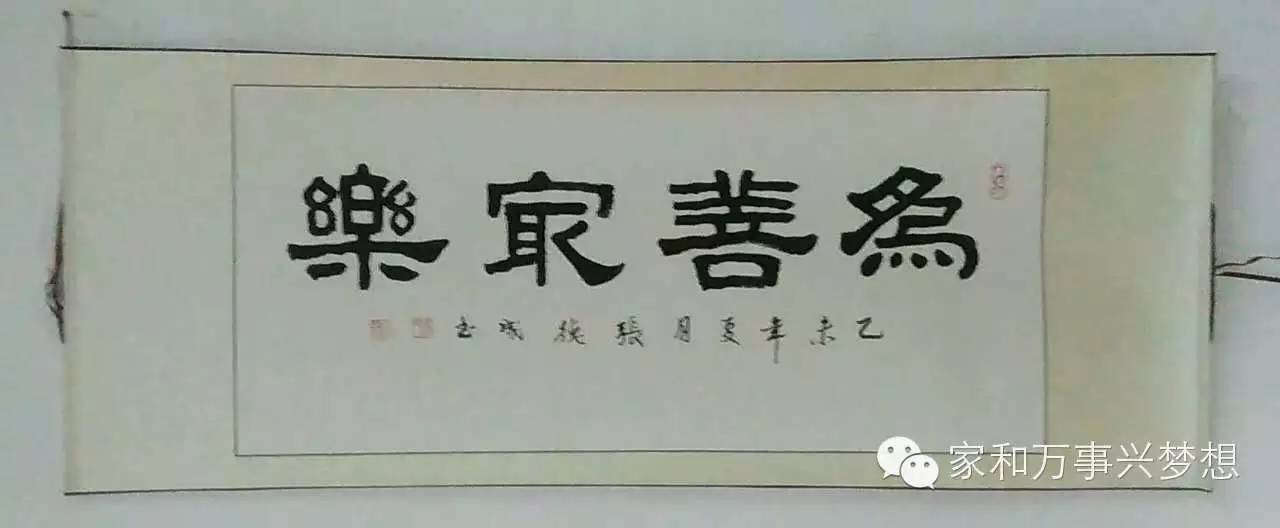 為善㝡樂
乙未年夏月張德成书
家和万事兴梦想